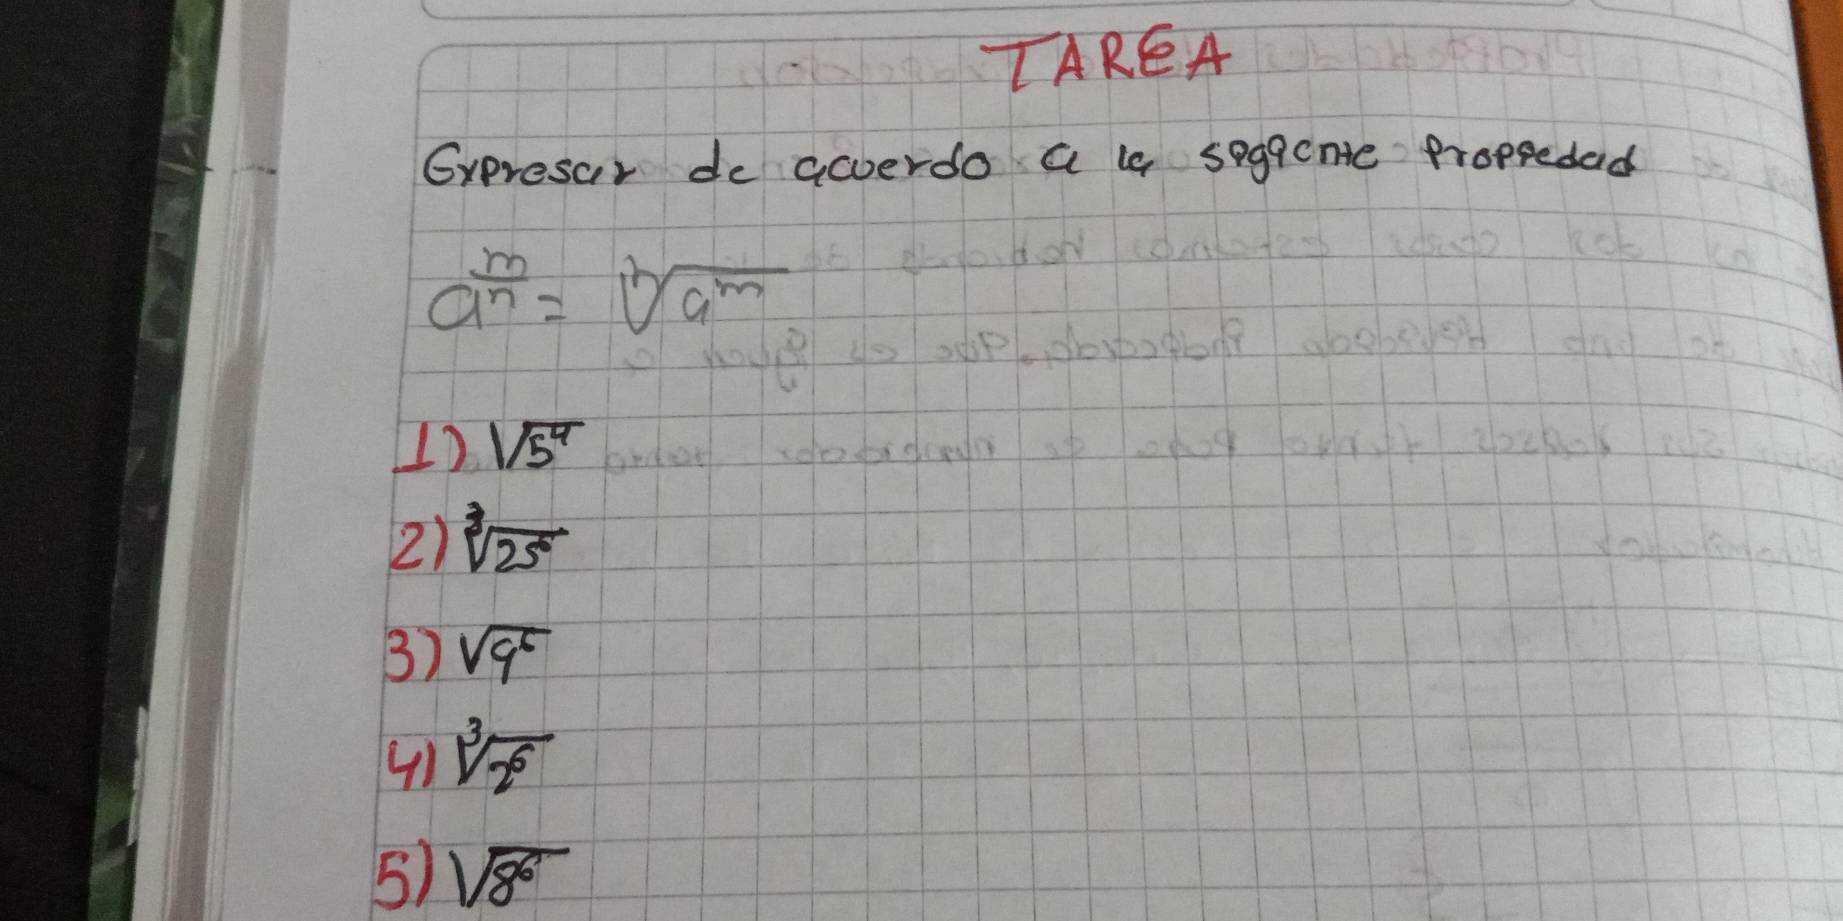 TAREA
Expresar de acuerdo a la siguiente propiedad
a^{m/n} = ⁿ√a^m
1) √5⁴
2) ³√25⁶
3) √9⁵
4) ³√2⁶
5) √8⁶